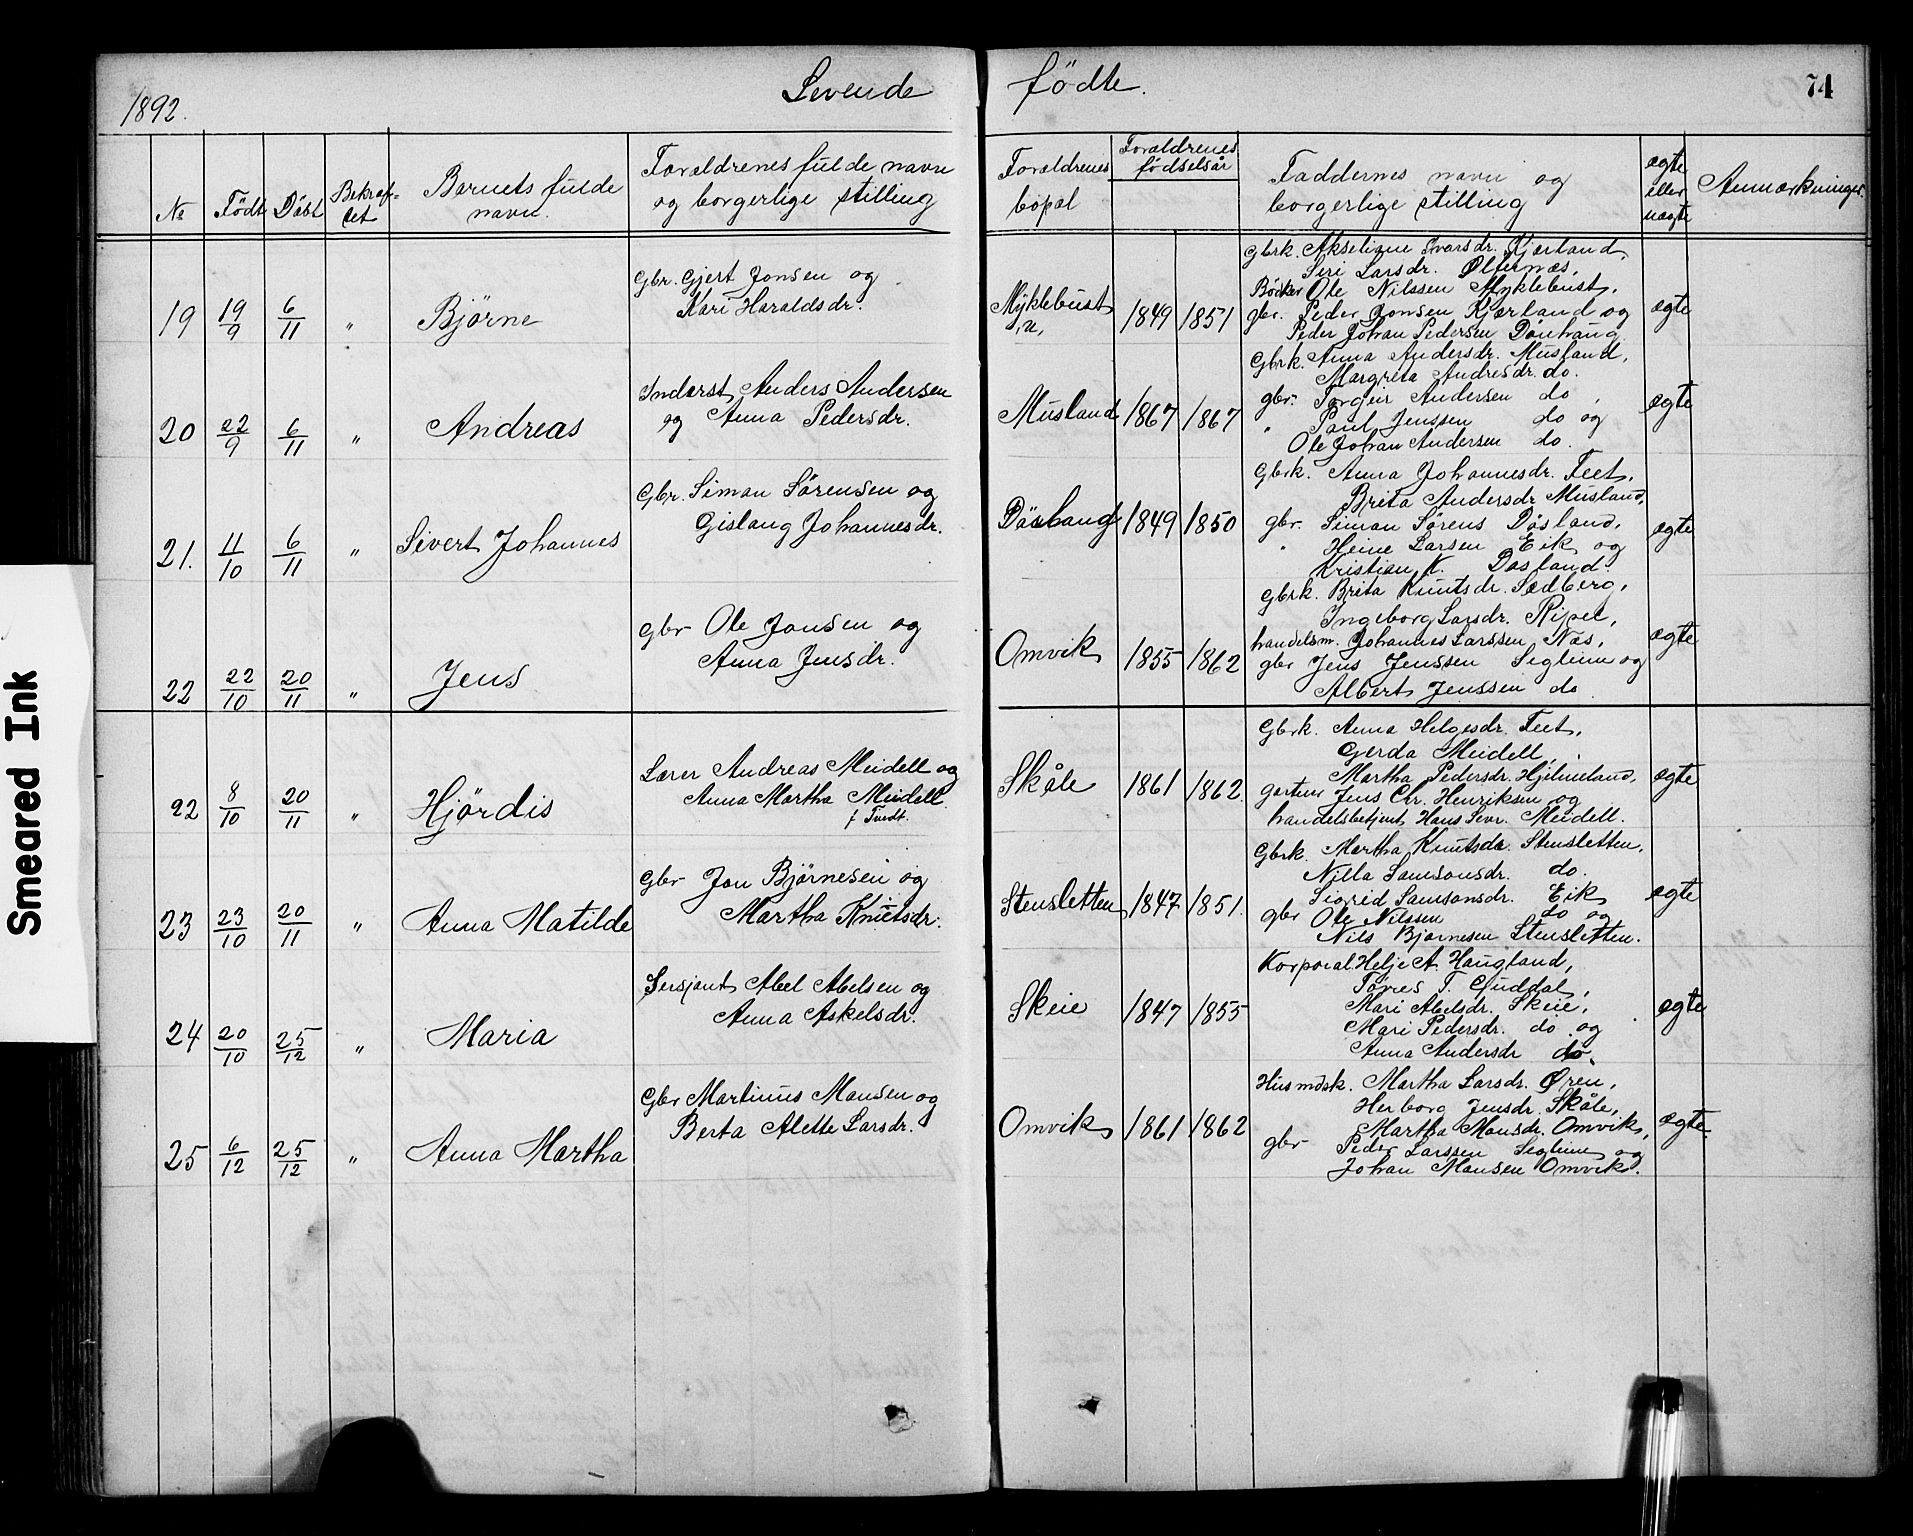 1892.
Levende
födte.
74
№
Födt
Döbt
Bekræf-
tet
Barnets fulde
navn.
Forældrenes fulde navn
og borgerlige stilling
Forældrenes
bopæl
Forældrenes
födselsår
Faddernes navn og
borgerlige stilling
ægte
eller
uægte
Anmærkninger.
19
19/9
6/11
"
Björne
Gbr. Gjert Jonsen og
Kari Haraldsdr.
Myklebust
1849
1851
Gbrk. Akseliane Ivarsdr. Kjærland,
Siri Larsdr. Ølfernæs,
Bödker Ole Nilssen Myklebust,
gbr. Peder Jonsen Kjærland og
Peder Johan Pedersen Döshaug
ægte
20
22/9
6/11
"
Andreas
Inderst Anders Andersen
og Anna Pedersdr.
Musland
1867
1867
Gbrk. Anna Andersdr. Musland,
Margreta Andresdr. do.
gbr. Torgeir Andersen do,
" Poul Jenssen do og
Ole Johan Andersen do.
ægte
21.
11/10
6/11
"
Sivert Johannes
Gbr. Simon Sörensen og
Gislaug Johannesdr.
1849
1850
Gbrk. Anna Johannesdr. Teet,
Brita Andersdr Musland,
gbr. Simon Sörens Dösland,
" Heine Larsen Eik og
Kristian K. Dösland.
ægte
22
22/10
20/11
"
Jens
Gbr Ole Jonsen og
Anna Jensdr.
Omvik
1855
1862
Gbrk. Brita Knutsdr. Sædberg,
Ingeborg Larsdr. Ripel,
handelsm. Johannes Larssen Næs,
gbr Jens Jenssen Segleim og
Albert Jenssen do.
ægte
22
8/10
20/11
"
Hjördis
Lærer Andreas Meidell og
Anna Martha Meidell
f Tvedt.
Skåle
1861
1862.
Gbrk. Anna Helgesdr. Teet,
Gerda Meidell,
Martha Pedersdr. Hjelmeland,
gartner Jens Chr. Henriksen og
handelsbetjent Hans Sevr. Meidell.
ægte
23
23/10
20/11
"
Anna Matilde
Gbr Jon Björnesen og
Martha Knutsdr.
Stensletten
1847
1851.
Gbrk. Martha Knutsdr. Stensletten,
Nilla Samsonsdr. do.
Sigrid Samsonsdr. Eik
gbr Ole Nilssen do og
Nils Bjørnesen Stensletten.
ægte
24
20/10
25/12
"
Maria
Sersjant Abel Abelsen og
Anna Askelsdr.
Skeie
1847
1855
Korporal Helje A. Haugland,
Torres T. Guddal,
Mari Abelsdr. Skeie,
Mari Pedersdr. do og
Anna Andersdr do.
ægte
25
6/12
25/12
"
Anna Martha
Gbr Martinus Monsen og
Berta Alette Larsdr.
Omvik
1861
1862
Husmdsk. Martha Larsdr. Øren,
Herborg Jensdr. Skåle,
Martha Monsdr. Omvik,
gbr Peder Larssen Segleim og
Johan Monsen Omvik.
ægte.
Smeared Ink